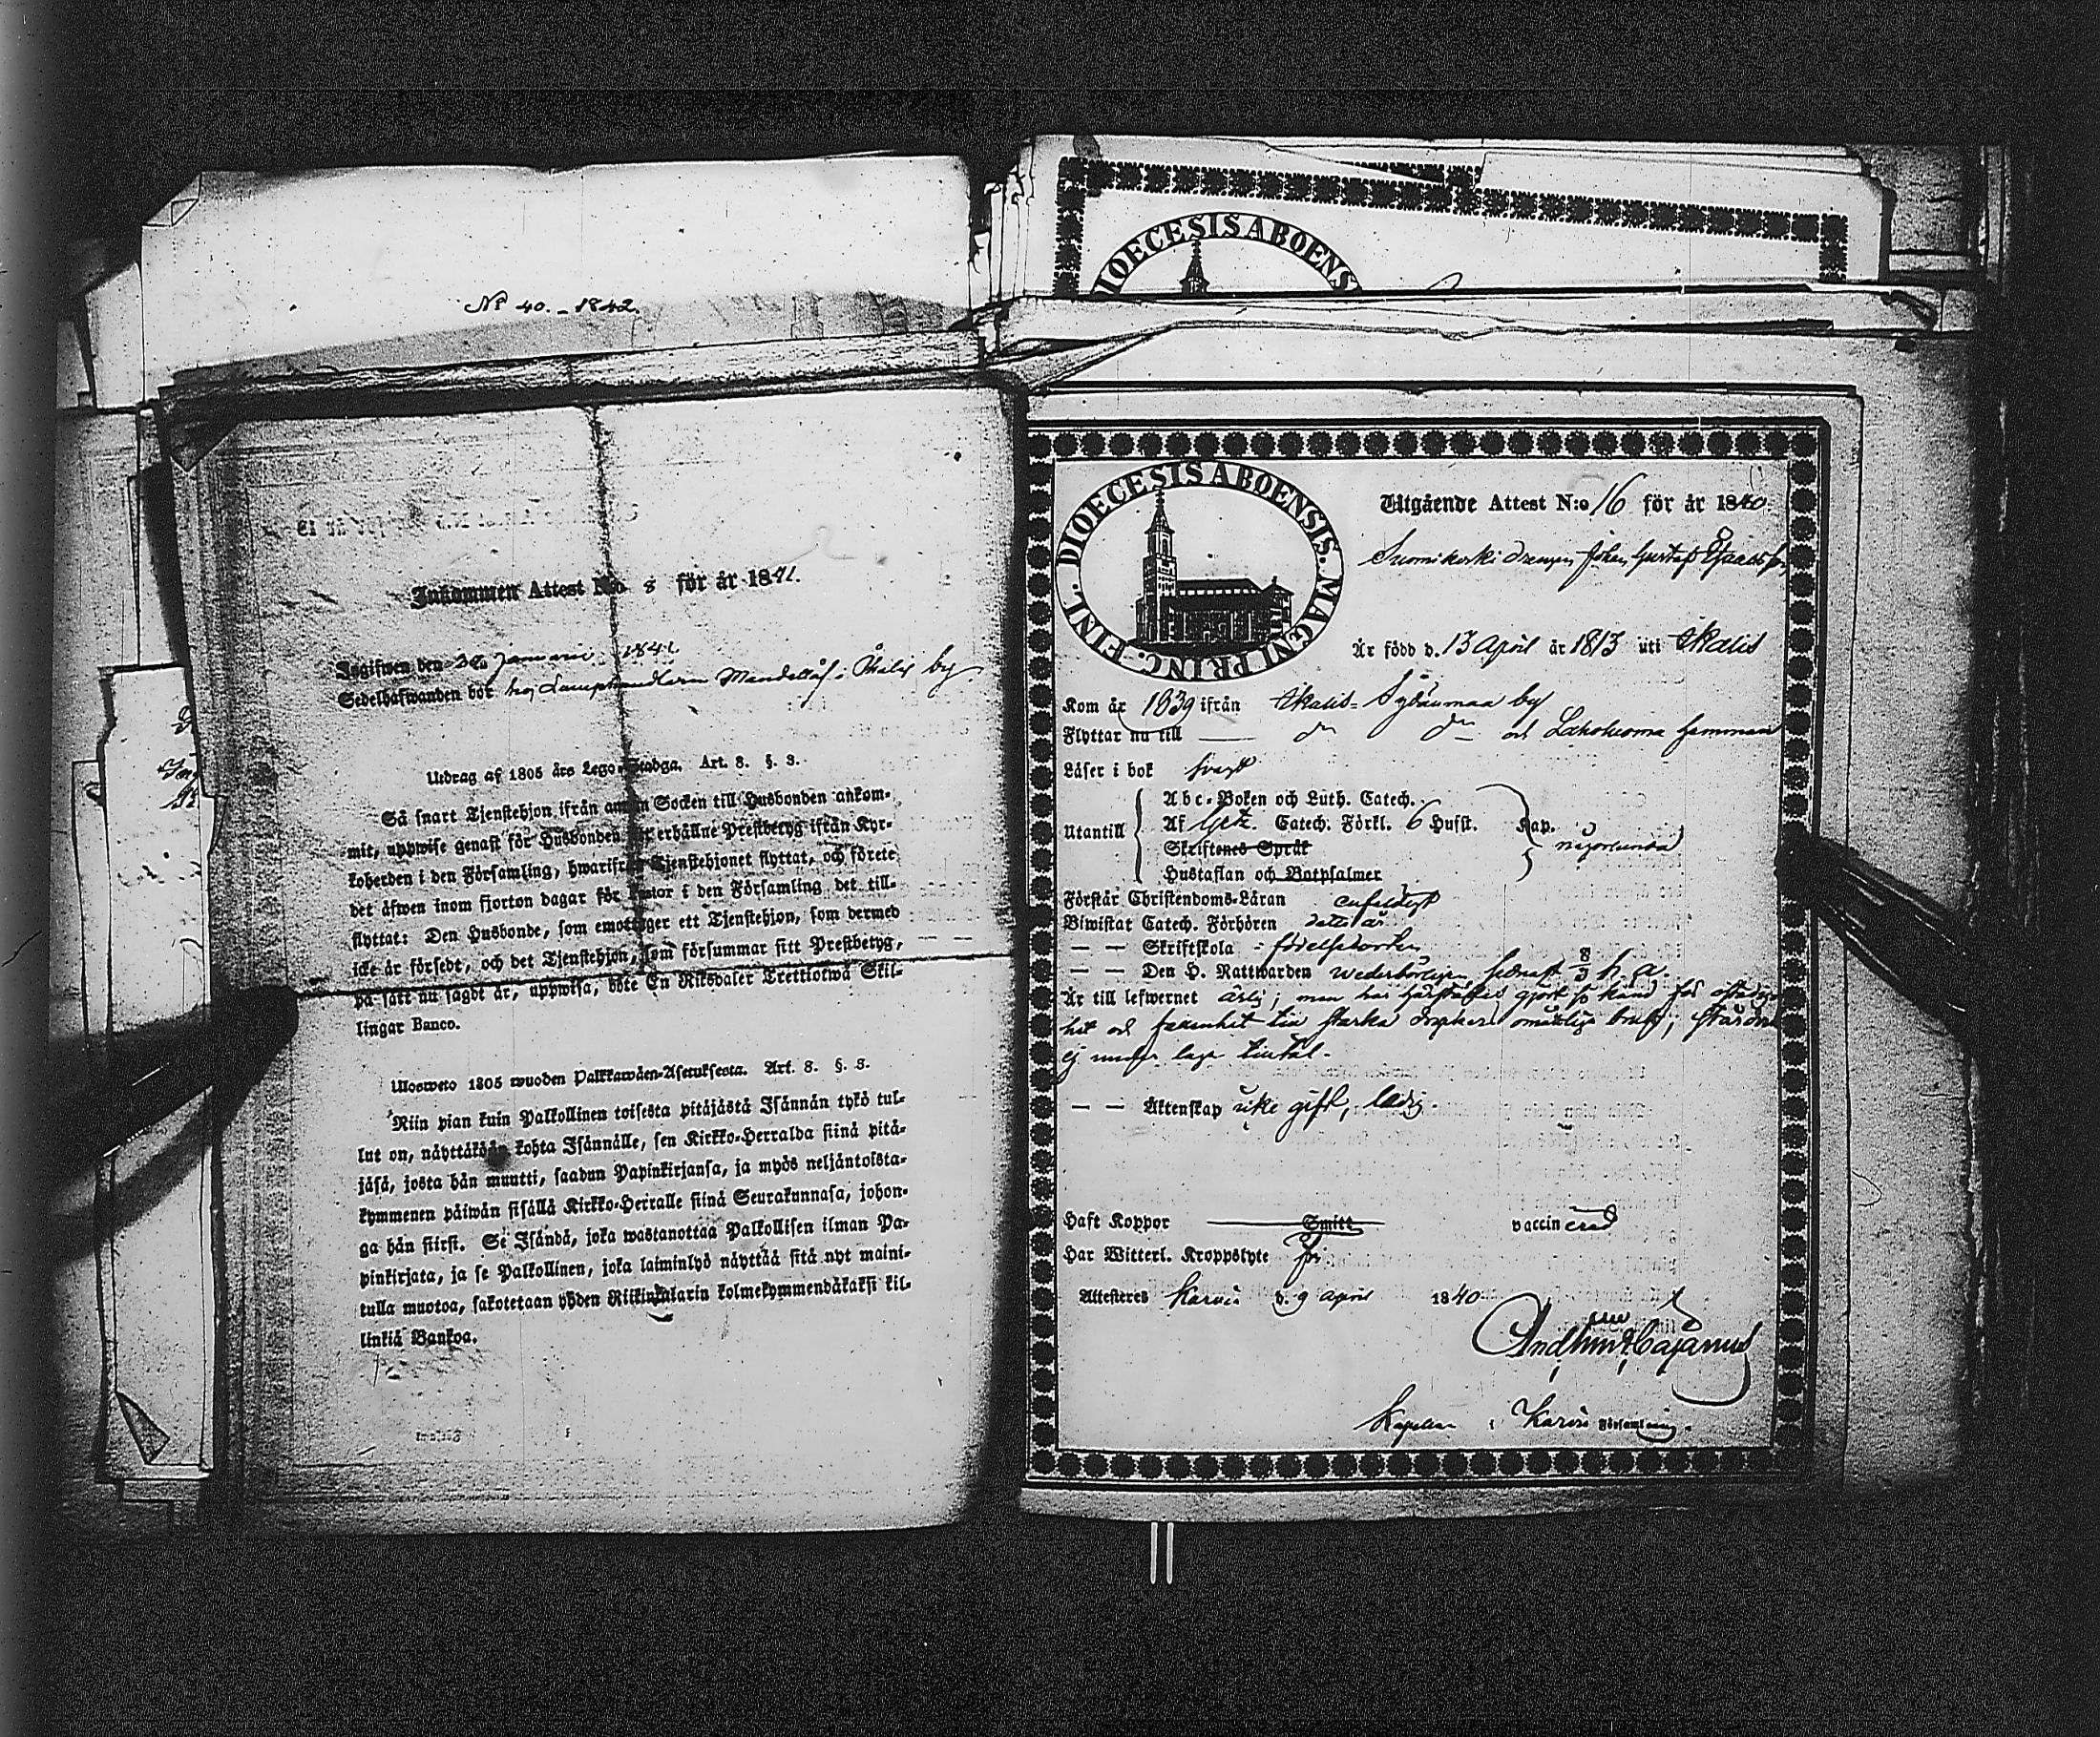 Nº 40. - 1842.
Inkommen Attest N:o 8 för år 1841.
Ingifwen den 30 Januarii 1841.
Sedelhafwanden bor hos i Ikalis by
Utdrag af 1805 års Lego-Stadga. Art. 8. §. 3.
Så snart Tjenstehjon ifrån annan Socken till Husbonden ankom-
mit, uppwise genast för Husbonden det erhållne Prestbetyg ifrån Kyr-
koherden i den Församling, hwarifrån Tjenstehjonet flyttat, och förete
det äfwen inom fjorton dagar för Pastor i den Församling det till-
flyttat: Den Husbonde, som emottager ett Tjenstehjon, som dermed
icke är försedt, och det Tjenstehjon, som försummar sitt Prestbetyg,
på sätt nu sagdt är, uppwisa, böte En Riksdaler Trettiotwå Skil-
lingar Banco.
Ulosweto 1805 wuoden Palkkawäen-Asetuksesta. Art. 8. §. 3.
Niin pian kuin Palkollinen toisesta pitäjästä Isännän tykö tul-
lut on, näyttäköön kohta Isännälle, sen Kirkko-Herralda siinä pitä-
jäsä, josta hän muutti, saadun Papinkirjansa, ja myös neljäntoista-
kymmenen päiwän sisällä Kirkko-Herralle siinä Seurakunnasa, johon-
ga hän siirsi. Se Isändä, joka wastanottaa Palkollisen ilman Pa-
pinkirjata, ja se Palkollinen, joka laiminlyö näyttää sitä nyt maini-
tulla muotoa, sakotetaan yhden Riikintalarin kolmekymmendäkaksi kil-
linkiä Bankoa.
DIOECESIS ABOENS
FINL. DIOECESIS ABOENSIS. MAGNI PRINC.
Utgående Attest N:o 16 för år 1840.
Suomikoski drengen Johan Gustaf
Är född d. 13 April år 1813 uti Ikalis
Kom år 1839 ifrån Ikalis Sydänmaa by
Flyttar nu till — dn dn och hemman
Läser i bok svagt
Utantill
Abc-Boken och Luth. Catech.
Af Catech. Förkl. 6 Hufst. Kap.
Skriftenes Språk
någorlunda
Hustaflan och Botpsalmer
Förstår Christendoms-Läran enfaldigt
Biwistat Catech. Förhören detta år
— — Skriftskola - födelseorten
— — Den H. Nattwarden wederbörligen senast 8/3 h. a.
Är till lefwernet ärlig; men har gjort sig känd för
het och till starka dryckers omåttliga bruk; står dock
ej under laga tilltal.
— — Äktenskap icke gift, ledig.
Haft Koppor — Smitt — vaccinerad
Har Witterl. Kroppslyte fri
Attesteras Karvia d. 9 April 1840.
And. Cajanus
Kapellan i Karvia Församling.